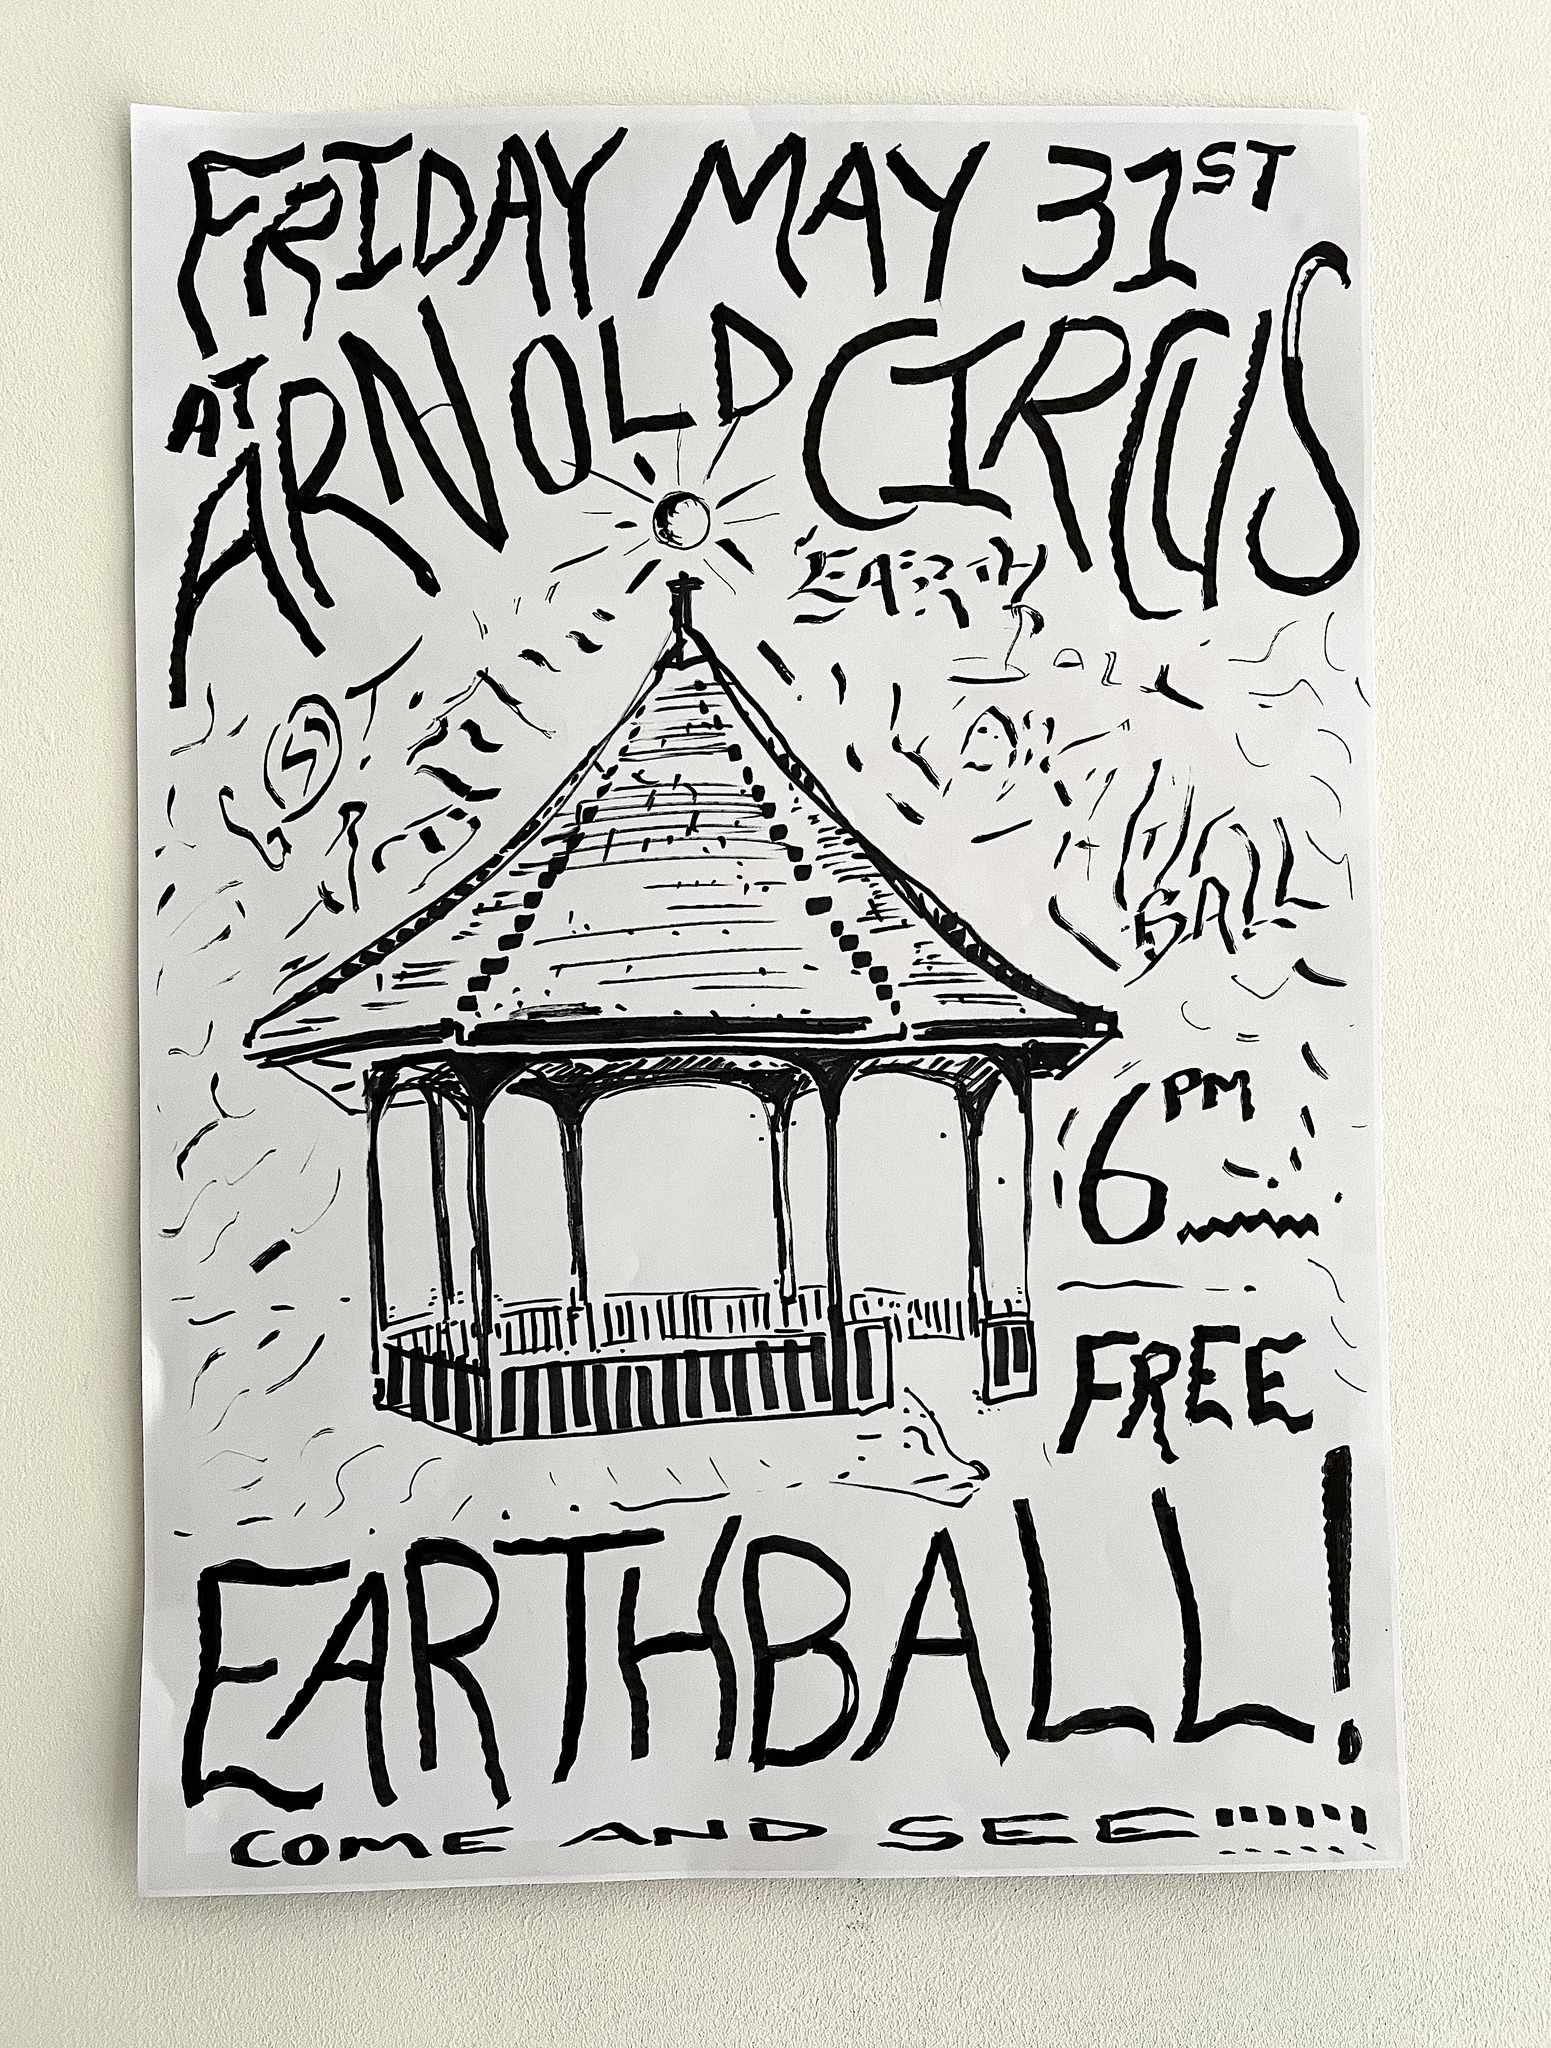 FRIDAY MAY 31ST
AT ARNOLD CIRCUS
EARTH
BALL
BALL
6PM
FREE
EARTHBALL!
COME AND SEE!!!!!!